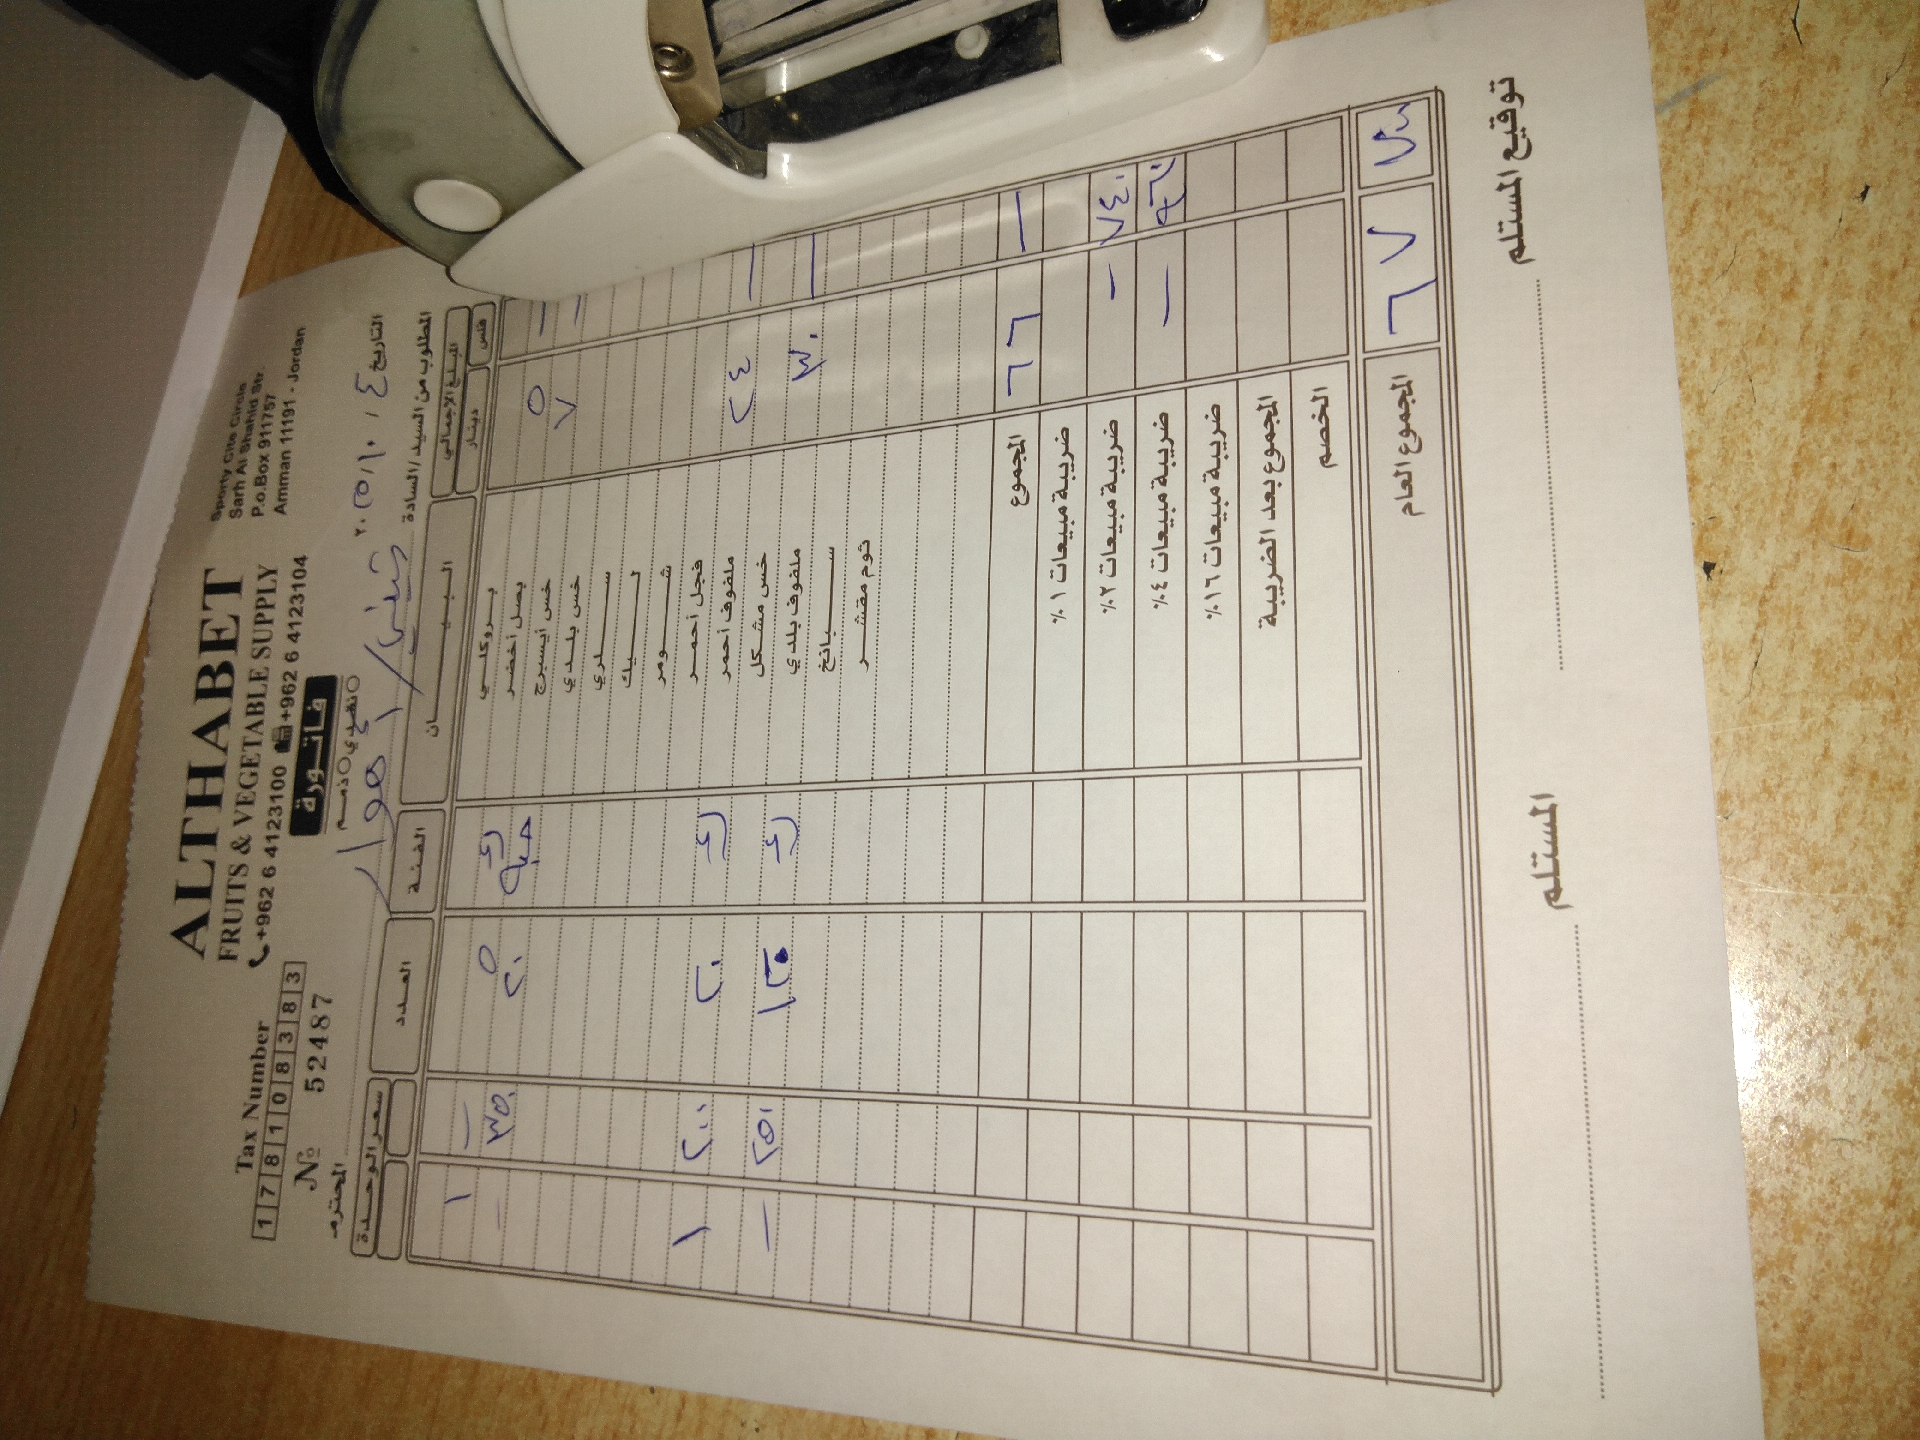 ALTHABET
FRUITS & VEGETABLE SUPPLY
+962 6 4123100 +962 6 4123104
Sporty Cite Circle
Sarh Al Shahid Str
P.o.Box 911757
Amman 11191 - Jordan
Tax Number
1 7 8 1 0 8 3 8 3
№ 52487
فاتورة
نقدي ذمم
التاريخ ٤ / ١٠ / ٢٠٢٥
المطلوب من السيد / السادة المحترم
المبلغ الإجمالي البيـــان الفئة العدد سعر الوحدة
فلس دينار
— ٥ بروكلي ك ٥ — ١
— ٧ بصل أخضر حبة ٢٠ ٣٥٠ —
خس أيسبرج
خس بلدي
سلري
ليك
شومر
— ٢٤ فجل أحمر ك ٢٠ ٢٠٠ ١
ملفوف أحمر
— ٣٠ خس مشكل ك ١٢٠ ٢٥٠ —
ملفوف بلدي
سبانخ
ثوم مقشر
— ٦٦ المجموع
ضريبة مبيعات ١٪
٧٤٠ — ضريبة مبيعات ٢٪
— ضريبة مبيعات ٤٪
ضريبة مبيعات ١٦٪
المجموع بعد الضريبة
الخصم
٦٧ المجموع العام
توقيع المستلم المستلم